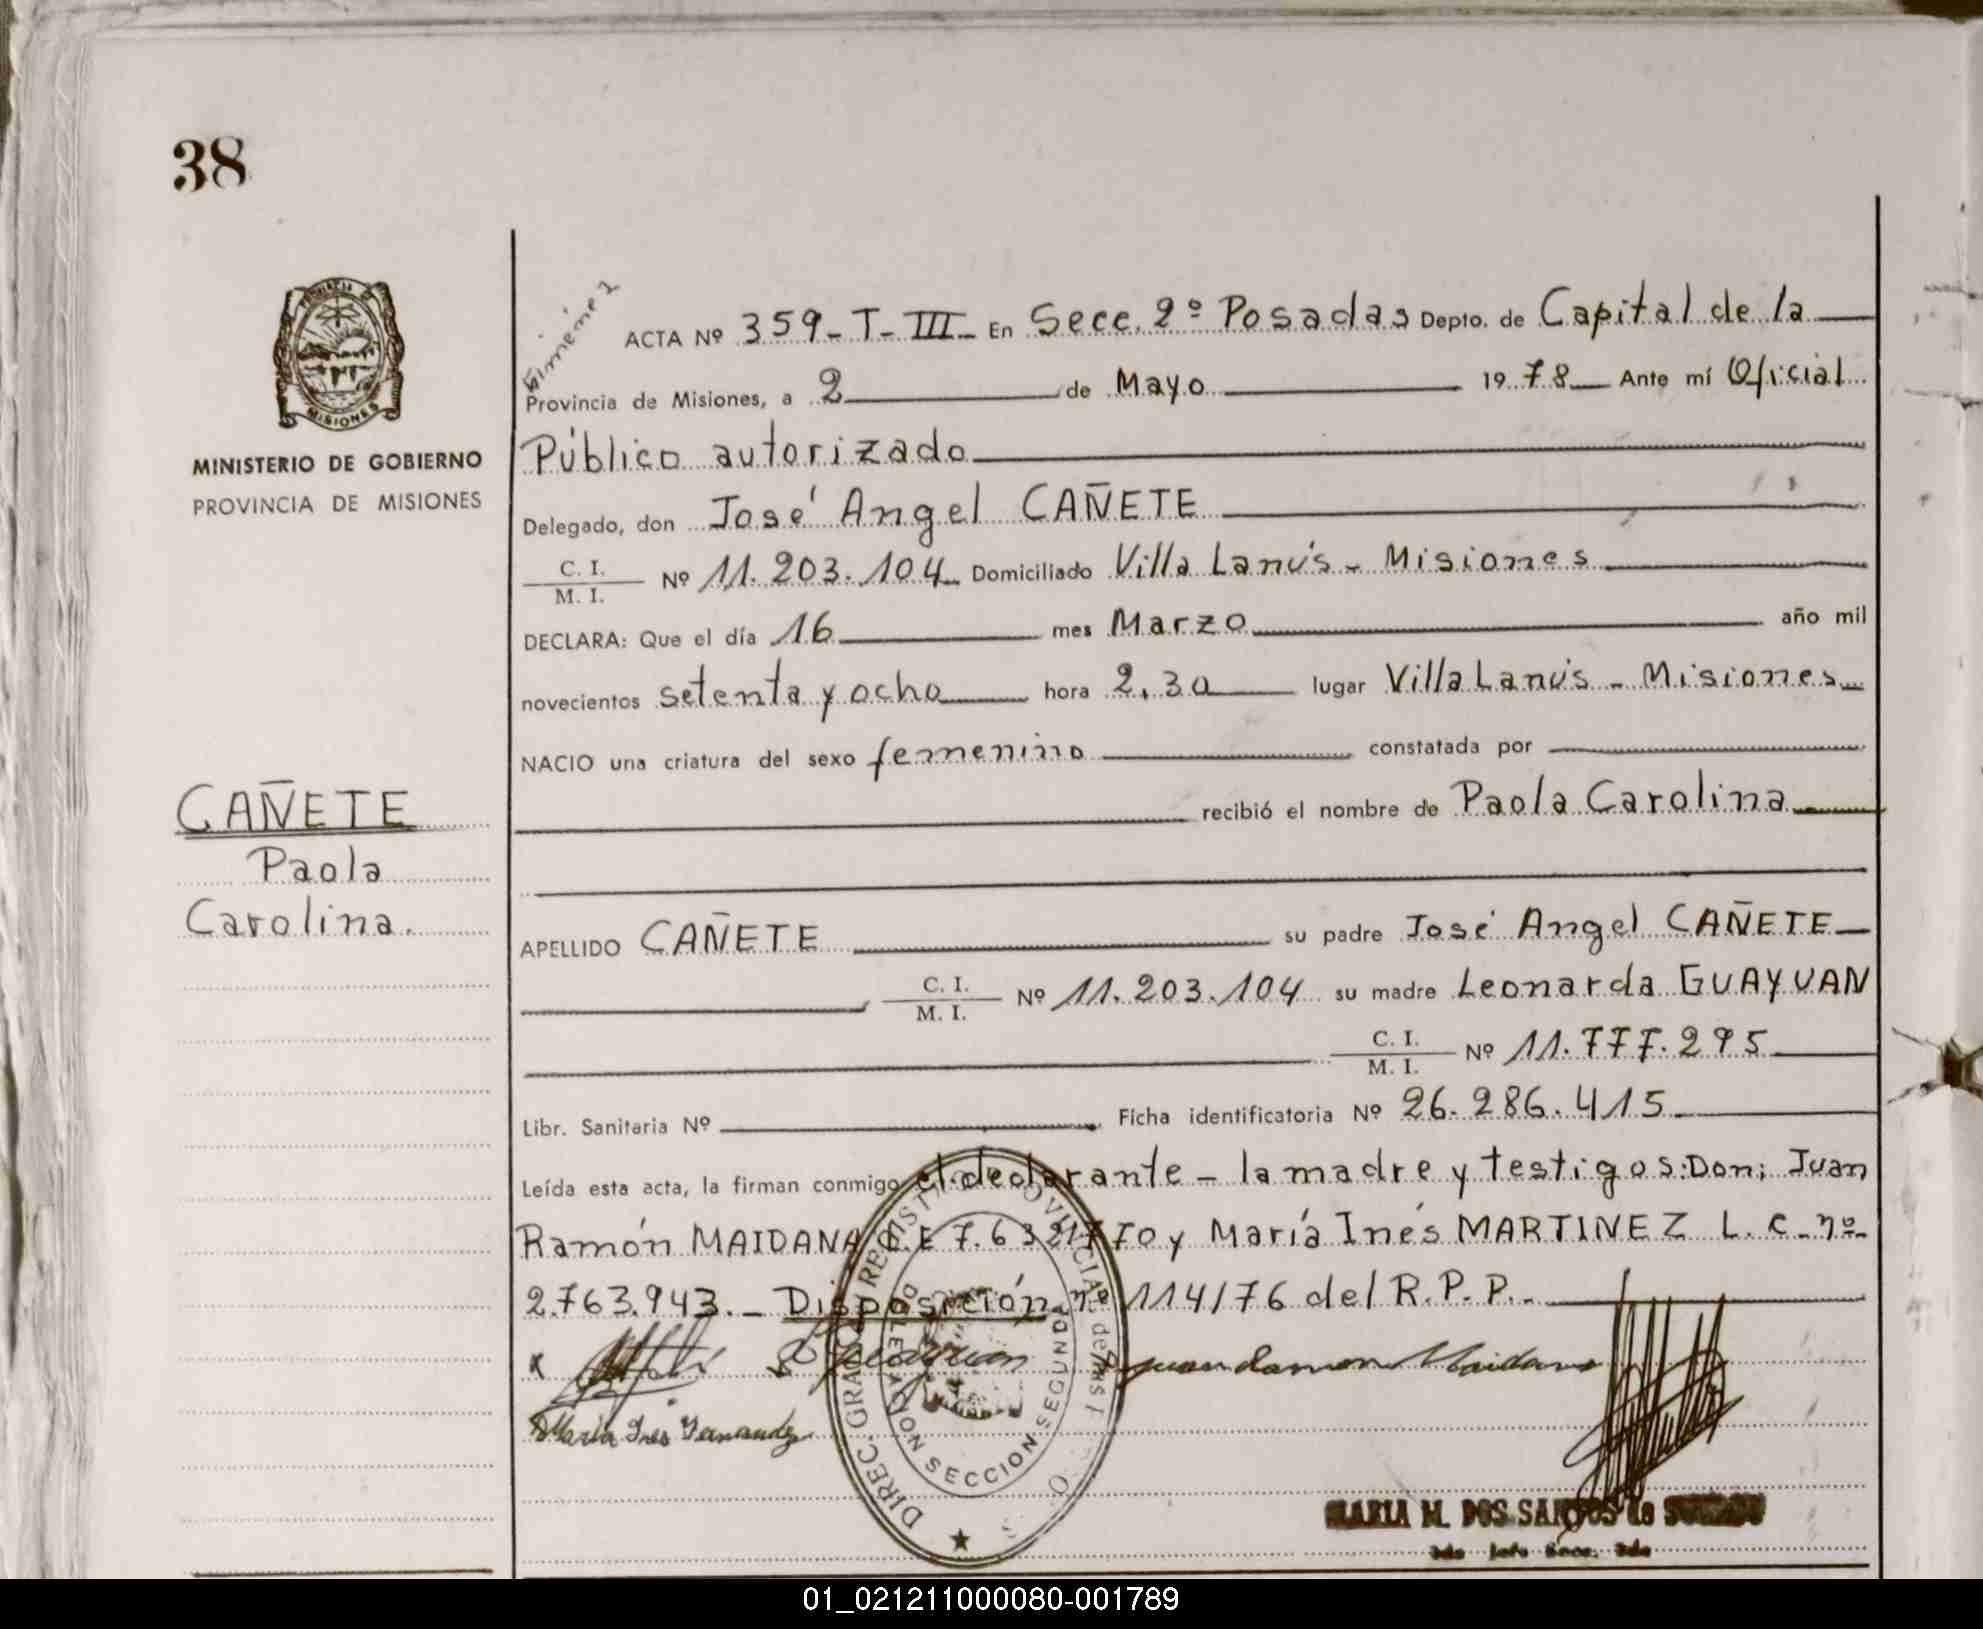 38
PROVINCIA DE
MISIONES
MINISTERIO DE GOBIERNO
PROVINCIA DE MISIONES
CAÑETE
Paola
Carolina.
ACTA Nº 359-T-III- En Secc. 2º Posadas Depto. de Capital de la
Provincia de Misiones, a 2 de Mayo 1978 Ante mí Oficial
Público autorizado
Delegado, don José Angel CAÑETE
C. I.
M. I. Nº 11.203.104 Domiciliado Villa Lanús - Misiones
DECLARA: Que el día 16 mes Marzo año mil
novecientos setenta y ocho hora 2,30 lugar Villa Lanús - Misiones
NACIO una criatura del sexo femenino constatada por
recibió el nombre de Paola Carolina
APELLIDO CAÑETE su padre José Angel CAÑETE
C. I.
M. I. Nº 11.203.104 su madre Leonarda GUAYUAN
C. I.
M. I. Nº 11.777.295
Libr. Sanitaria Nº Ficha identificatoria Nº 26.286.415
Leída esta acta, la firman conmigo el declarante - la madre y testigos: Don; Juan
Ramón MAIDANA y María Inés MARTINEZ L. C. nº
2.763.943. - Disposición nº 114/76 del R.P.P.
Juan Ramon Maidana
María Inés Fernandez
DELEGACION SECCION SEGUNDA
MARIA M. DOS SANTOS de
2do Jefe Secc. 2da
01_021211000080-001789